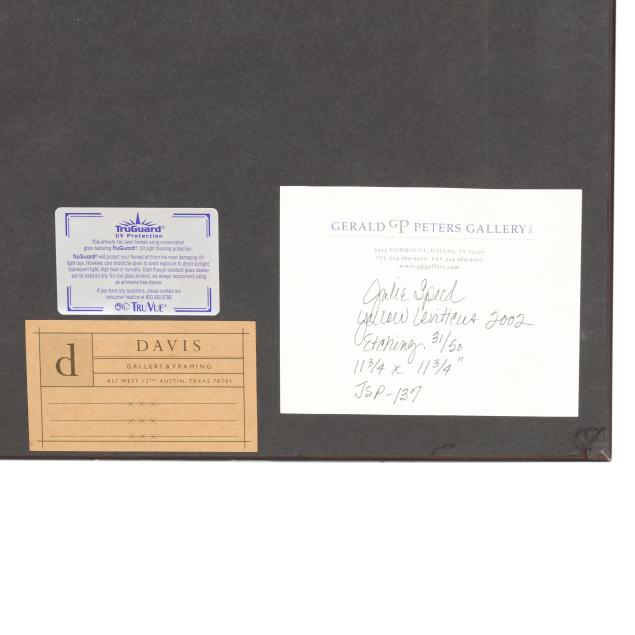 TruGuard®
UV Protection
This artwork has been framed using conservation
glass featuring TruGuard®, UV light blocking protection.
TruGuard® will protect your framed art from the most damaging UV
light rays. However, care should be given to avoid exposure to direct sunlight,
fluorescent light, high heat or humidity. Even though standard glass cleaner
can be used on any Tru Vue glass product, we always recommend using
an ammonia-free cleaner.
If you have any questions, please contact our
consumer helpline at 800.282.8788.
TRU VUE®
d
DAVIS
GALLERY & FRAMING
837 WEST 12TH AUSTIN, TEXAS 78701
×-×-×
×-×-×
×-×-×
GERALD GP PETERS GALLERY
2913 FAIRMOUNT, DALLAS, TX 75201
TEL 214 969-9410 FAX 214 969-9023
www.gpgallery.com
Julie Speed
Yellow Leviticus 2002
Etching 31/50
11 3/4 x 11 3/4"
JSP-137